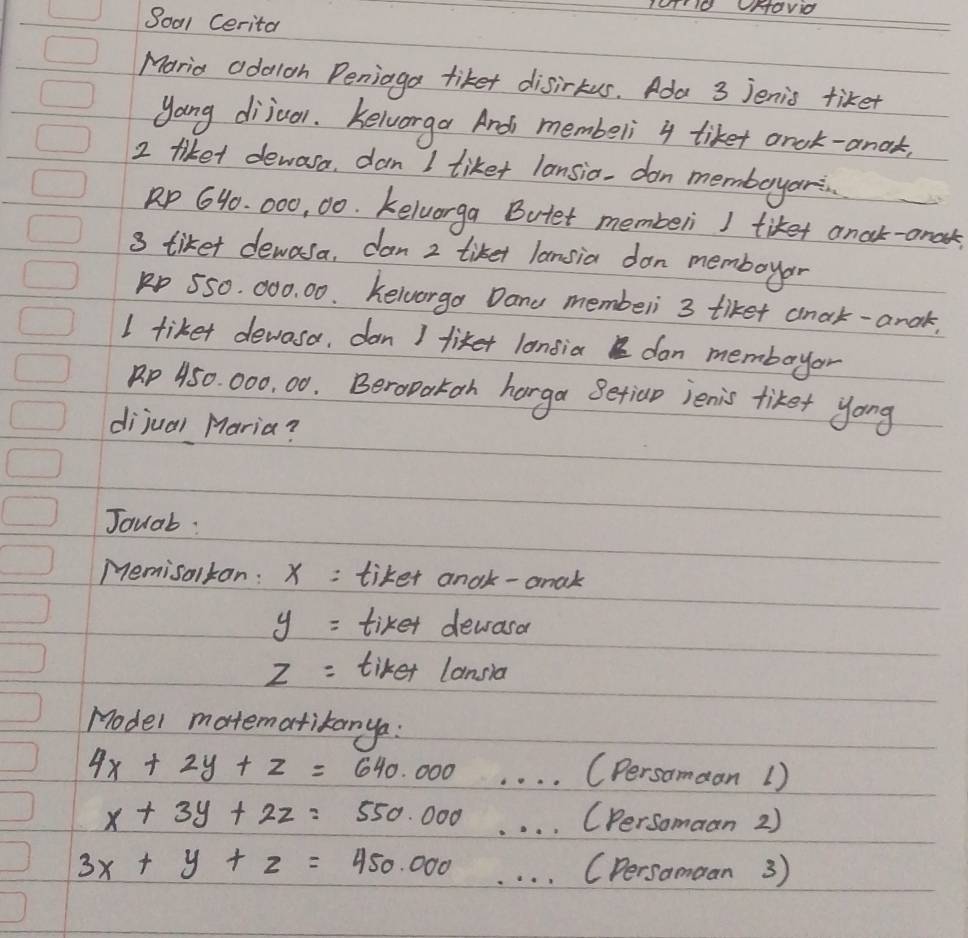 Oktavia
Soal Cerita
Maria adalah Peniaga tiket disirkus. Ada 3 jenis tiket
yang dijual. Keluarga Andi membeli 4 tiket anak-anak,
2 tiket dewasa, dan 1 tiket lansia dan membayar
RP 640.000,00. Keluarga Butet membeli 1 tiket anak-anak,
3 tiket dewasa, dan 2 tiket lansia dan membayar
RP 550.000,00. Keluarga Danu membeli 3 tiket anak-anak,
1 tiket dewasa, dan 1 tiket lansia dan membayar
RP 450.000,00. Berapakah harga Setiap jenis tiket yang
dijual Maria?
Jawab:
Memisalkan: x = tiket anak-anak
y = tiket dewasa
z = tiket lansia
Model matematikanya:
4x + 2y + z = 640.000 .... (Persamaan 1)
x + 3y + 2z = 550.000 .... (Persamaan 2)
3x + y + z = 450.000 .... (Persamaan 3)